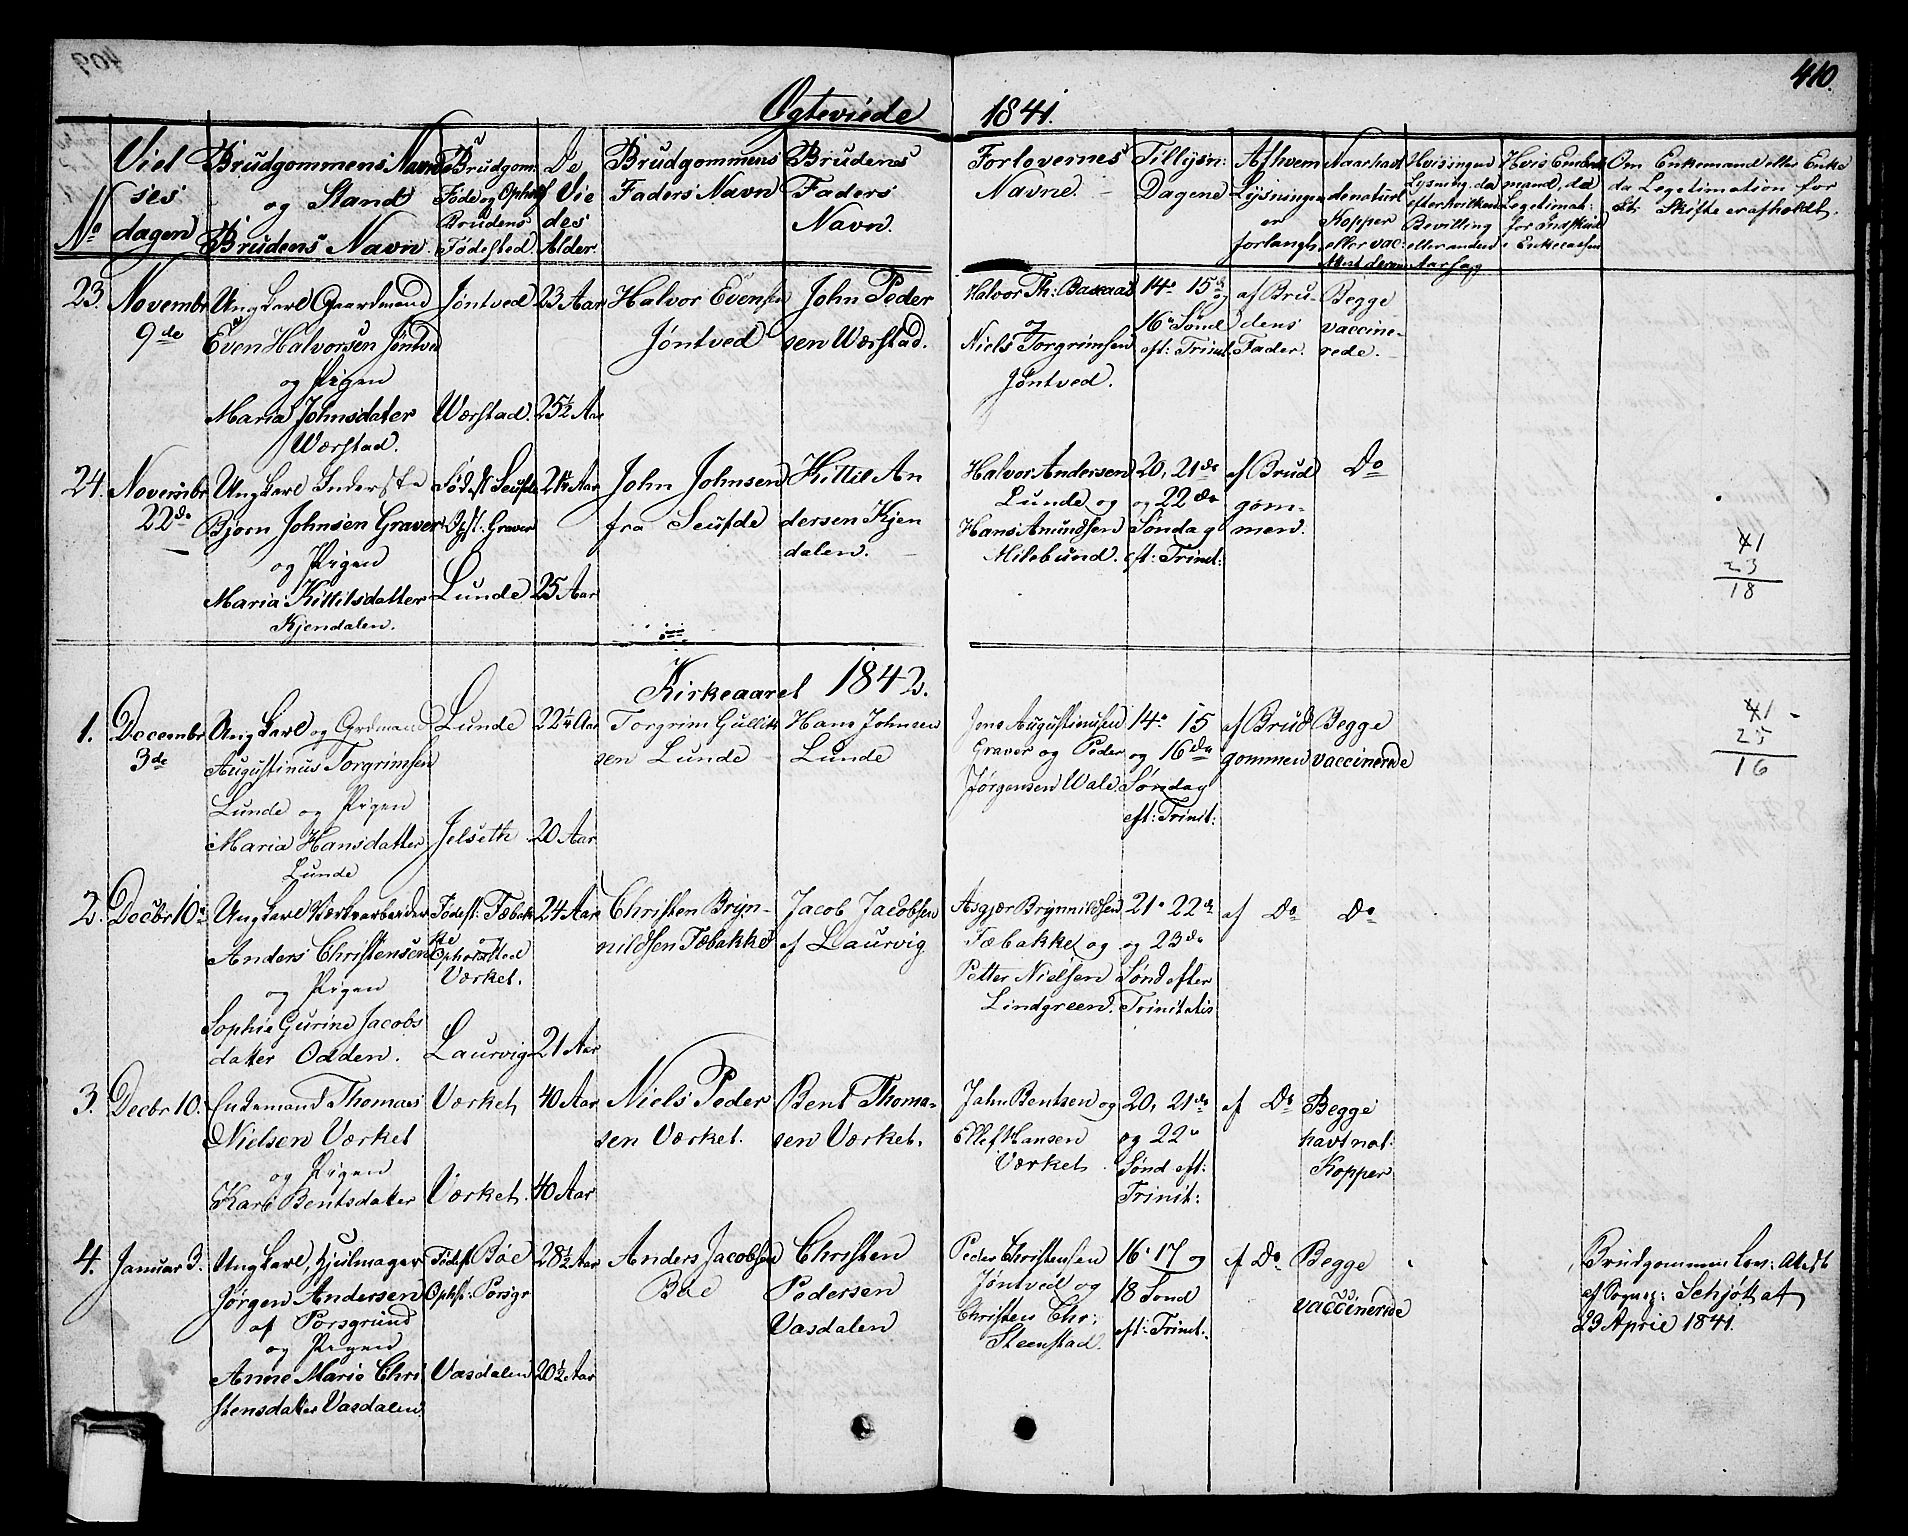 409
410.
Egteviede 1841.
No
Vielsesdagen
Brudgommens Navn og Stand Brudens Navn.
Brudgom: Føde og Ophst Brudens Fødested
De Viedes Alder.
Brudgommens Faders Navn
Brudens Faders Navn.
Forlovernes Navne.
Tillysn: Dagene
Af hvem Lysningen er forlangt.
Naar havt de naturl Kopper eller vac:
Hvis ingen Lysning, da efter hvilken Bevilling eller anden Aarsag
Hvis Enkemand, da Legetimat: for Indskud i Enkecassen
Om Enkemand eller Enke da Legetimation for at Skifte er afholdt.
23.
Novembr 9de
Ungkarl Gaardmand
Even Halvorsen Jøntved
og Pigen
Maria Johnsdater
Wærstad.
Jøntved
Wærstad.
23 Aar
25½ Aar
Halvor Evensen
Jøntved
John Peder
sen Wærstad.
Halvor Th: Baxaas
og
Niels Torgrimsen
Jøntved.
14. 15de og
16de Sønd
eft: Trinit.
af Bru-
dens
Fader.
Begge
vaccine-
rede.
24.
Novembr
22de
Ungkarl Inderste
Bjørn Johnsen Graver
og Pigen
Maria Kittilsdatter
Kjendalen.
Fødest Seufde
Opst: Graver
Lunde
25 Aar
John Johnsen
fra Seufde
Kittil An
dersen Kjen
dalen.
Halvor Andersen
Lunde og
Hans Amundsen
Milebund.
20, 21de
og 22de
Søndag
eft: Trinit:
af Brud
gom-
men.
Do
41
23
18
Kirkeaaret 1842.
1.
Decembr
3de
Ungkarl og Grdmand
Augustinus Torgrimsen
Lunde og Pigen
Maria Hansdatter
Lunde
Lunde
Jelseth
22¼ Aar
20 Aar
Torgrim Gullik
sen Lunde
Hans Johnsen
Lunde
Jens Augustinusen
Graver og Peder
Jørgensen Wale
14. 15
og 16de
Søndag
eft: Trinit:
af Brud
gommen
Begge
vaccinerede
41
25
16
2.
Decbr 10.
Ungkarl Værksarbeider
Anders Christensen
og Pigen
Sophie Gurine Jacobs
datter Odden.
Fødest: Tæbak
ke og
Ophorsted
Værket.
Laurvig
24 Aar
21 Aar
Christen Bryn-
nildsen Tæbakke
Jacob Jacobsen
af Laurvig
Asgjær Brynnildsen
Tæbakke og
Petter Nielsen
Lindgreen.
21. 22de
og 23de
Sønd efter
Trinitatis
af Do
Do
3.
Decbr 10.
Enkemand Thomas
Nielsen Værket
og Pigen
Kari Bentsdatter
Værket
Værket.
40 Aar
40 Aar
Niels Peder
sen Værket.
Bent Thoma-
sen Værket.
John Bentsen og
Ellef Hansen
Værket
20, 21de
og 22
Sønd eft:
Trinit:
af Do
Begge
havt nat:
Kopper
4.
Januar 3.
Ungkarl, Hjulmager
Jørgen Andersen
af Porsgrund
og Pigen
Anne Marie Chri
stensdatter Vasdalen
Fødest Bøe
Ophst: Porsgr
Vasdalen
28½ Aar
20½ Aar
Anders Jacobsen
Bøe
Christen
Pedersen
Vasdalen
Peder Christensen
Jøntved og
Christen Chr:
Steenstad.
16. 17 og
18 Sønd
eft: Trinit.
af Do
Begge
vaccinerede
Brudgommens Lov: Atest
af Sognepr: Schjøtt af
23 April 1841.